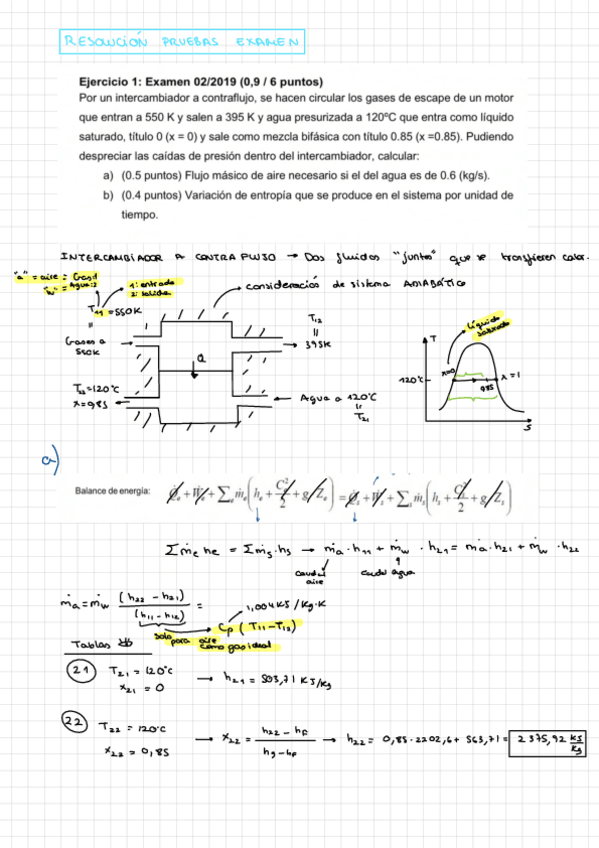 RESOLUCIÓN PRUEBAS EXAMEN
Ejercicio 1: Examen 02/2019 (0,9 / 6 puntos)
Por un intercambiador a contraflujo, se hacen circular los gases de escape de un motor
que entran a 550 K y salen a 395 K y agua presurizada a 120ºC que entra como líquido
saturado, título 0 (x = 0) y sale como mezcla bifásica con título 0.85 (x =0.85). Pudiendo
despreciar las caídas de presión dentro del intercambiador, calcular:
a) (0.5 puntos) Flujo másico de aire necesario si el del agua es de 0.6 (kg/s).
b) (0.4 puntos) Variación de entropía que se produce en el sistema por unidad de
tiempo.
INTERCAMBIADOR A CONTRA FLUJO → Dos fluidos "juntos" que se transfieren calor.
"a" = aire = Gas:1
"w" = Agua:2
1: entrada
2: salida
consideración de sistema ADIABÁTICO
T11 = 550K
T12
=
395K
Gases a
550K
Q
T22 = 120°C
x = 0,85
Agua a 120°C
=
T21
Líquido
saturado
T
120°C
x=0
x=1
0,85
s
a)
Balance de energía: Q̇e + Ẇe + Σe ṁe(he + Ce²/2 + g/Ze) = Q̇s + Ẇs + Σs ṁs(hs + Cs²/2 + g/Zs)
Σṁe he = Σṁs·hs → ṁa·h11 + ṁw·h21 = ṁa·h21 + ṁw·h22
caudal
aire
caudal agua
ṁa = ṁw (h22 - h21) / (h11 - h12) =
1,004 KJ/Kg·K
Cp (T11 - T12)
solo para aire
como gas ideal
Tablas
21 T21 = 120°C
x21 = 0
→ h21 = 503,71 KJ/Kg
22 T22 = 120°C
x22 = 0,85
→ x22 = h22 - hf / hg - hf → h22 = 0,85·2202,6 + 503,71 = 2375,92 KJ/Kg